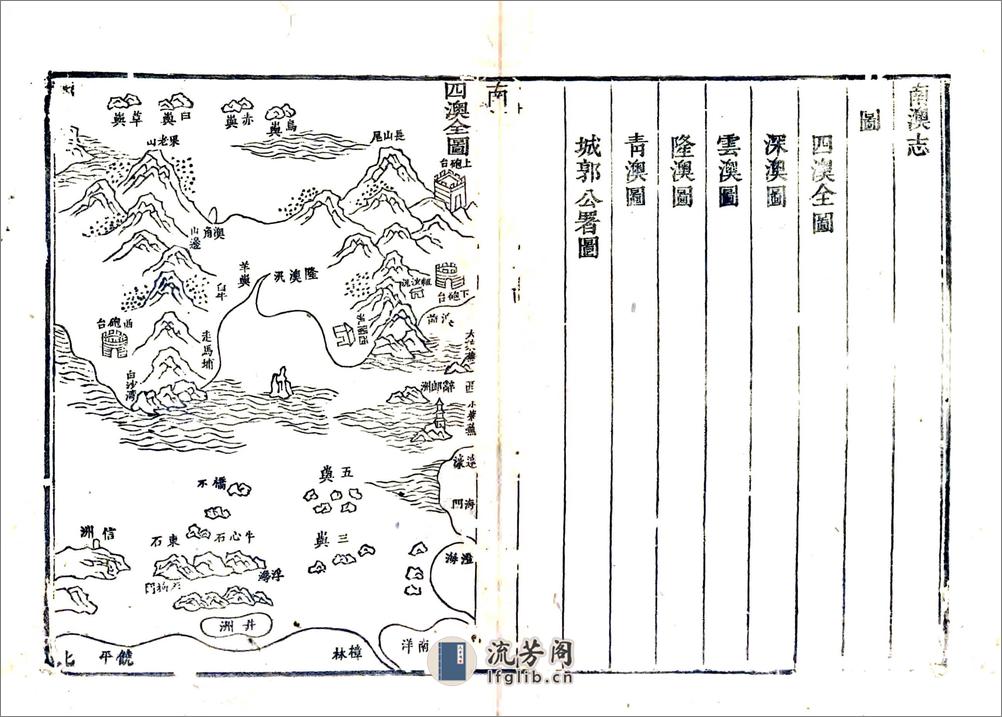 南澳志
圖
四澳全圖
深澳圖
雲澳圖
隆澳圖
青澳圖
城郭公署圖
南
四澳全圖
烏嶼
赤嶼
白嶼
草嶼
長山尾
果老山
上砲台
澳角
山邊
羊嶼
隆澳汛
下砲台
西砲台
走馬埔
白沙灣
西閣汛
辭郎洲
西
五嶼
三嶼
信洲
東石
牛心石
浮潯
井洲
海門
澄海
南洋
樟林
饒平
流芳阁
lfglib.cn